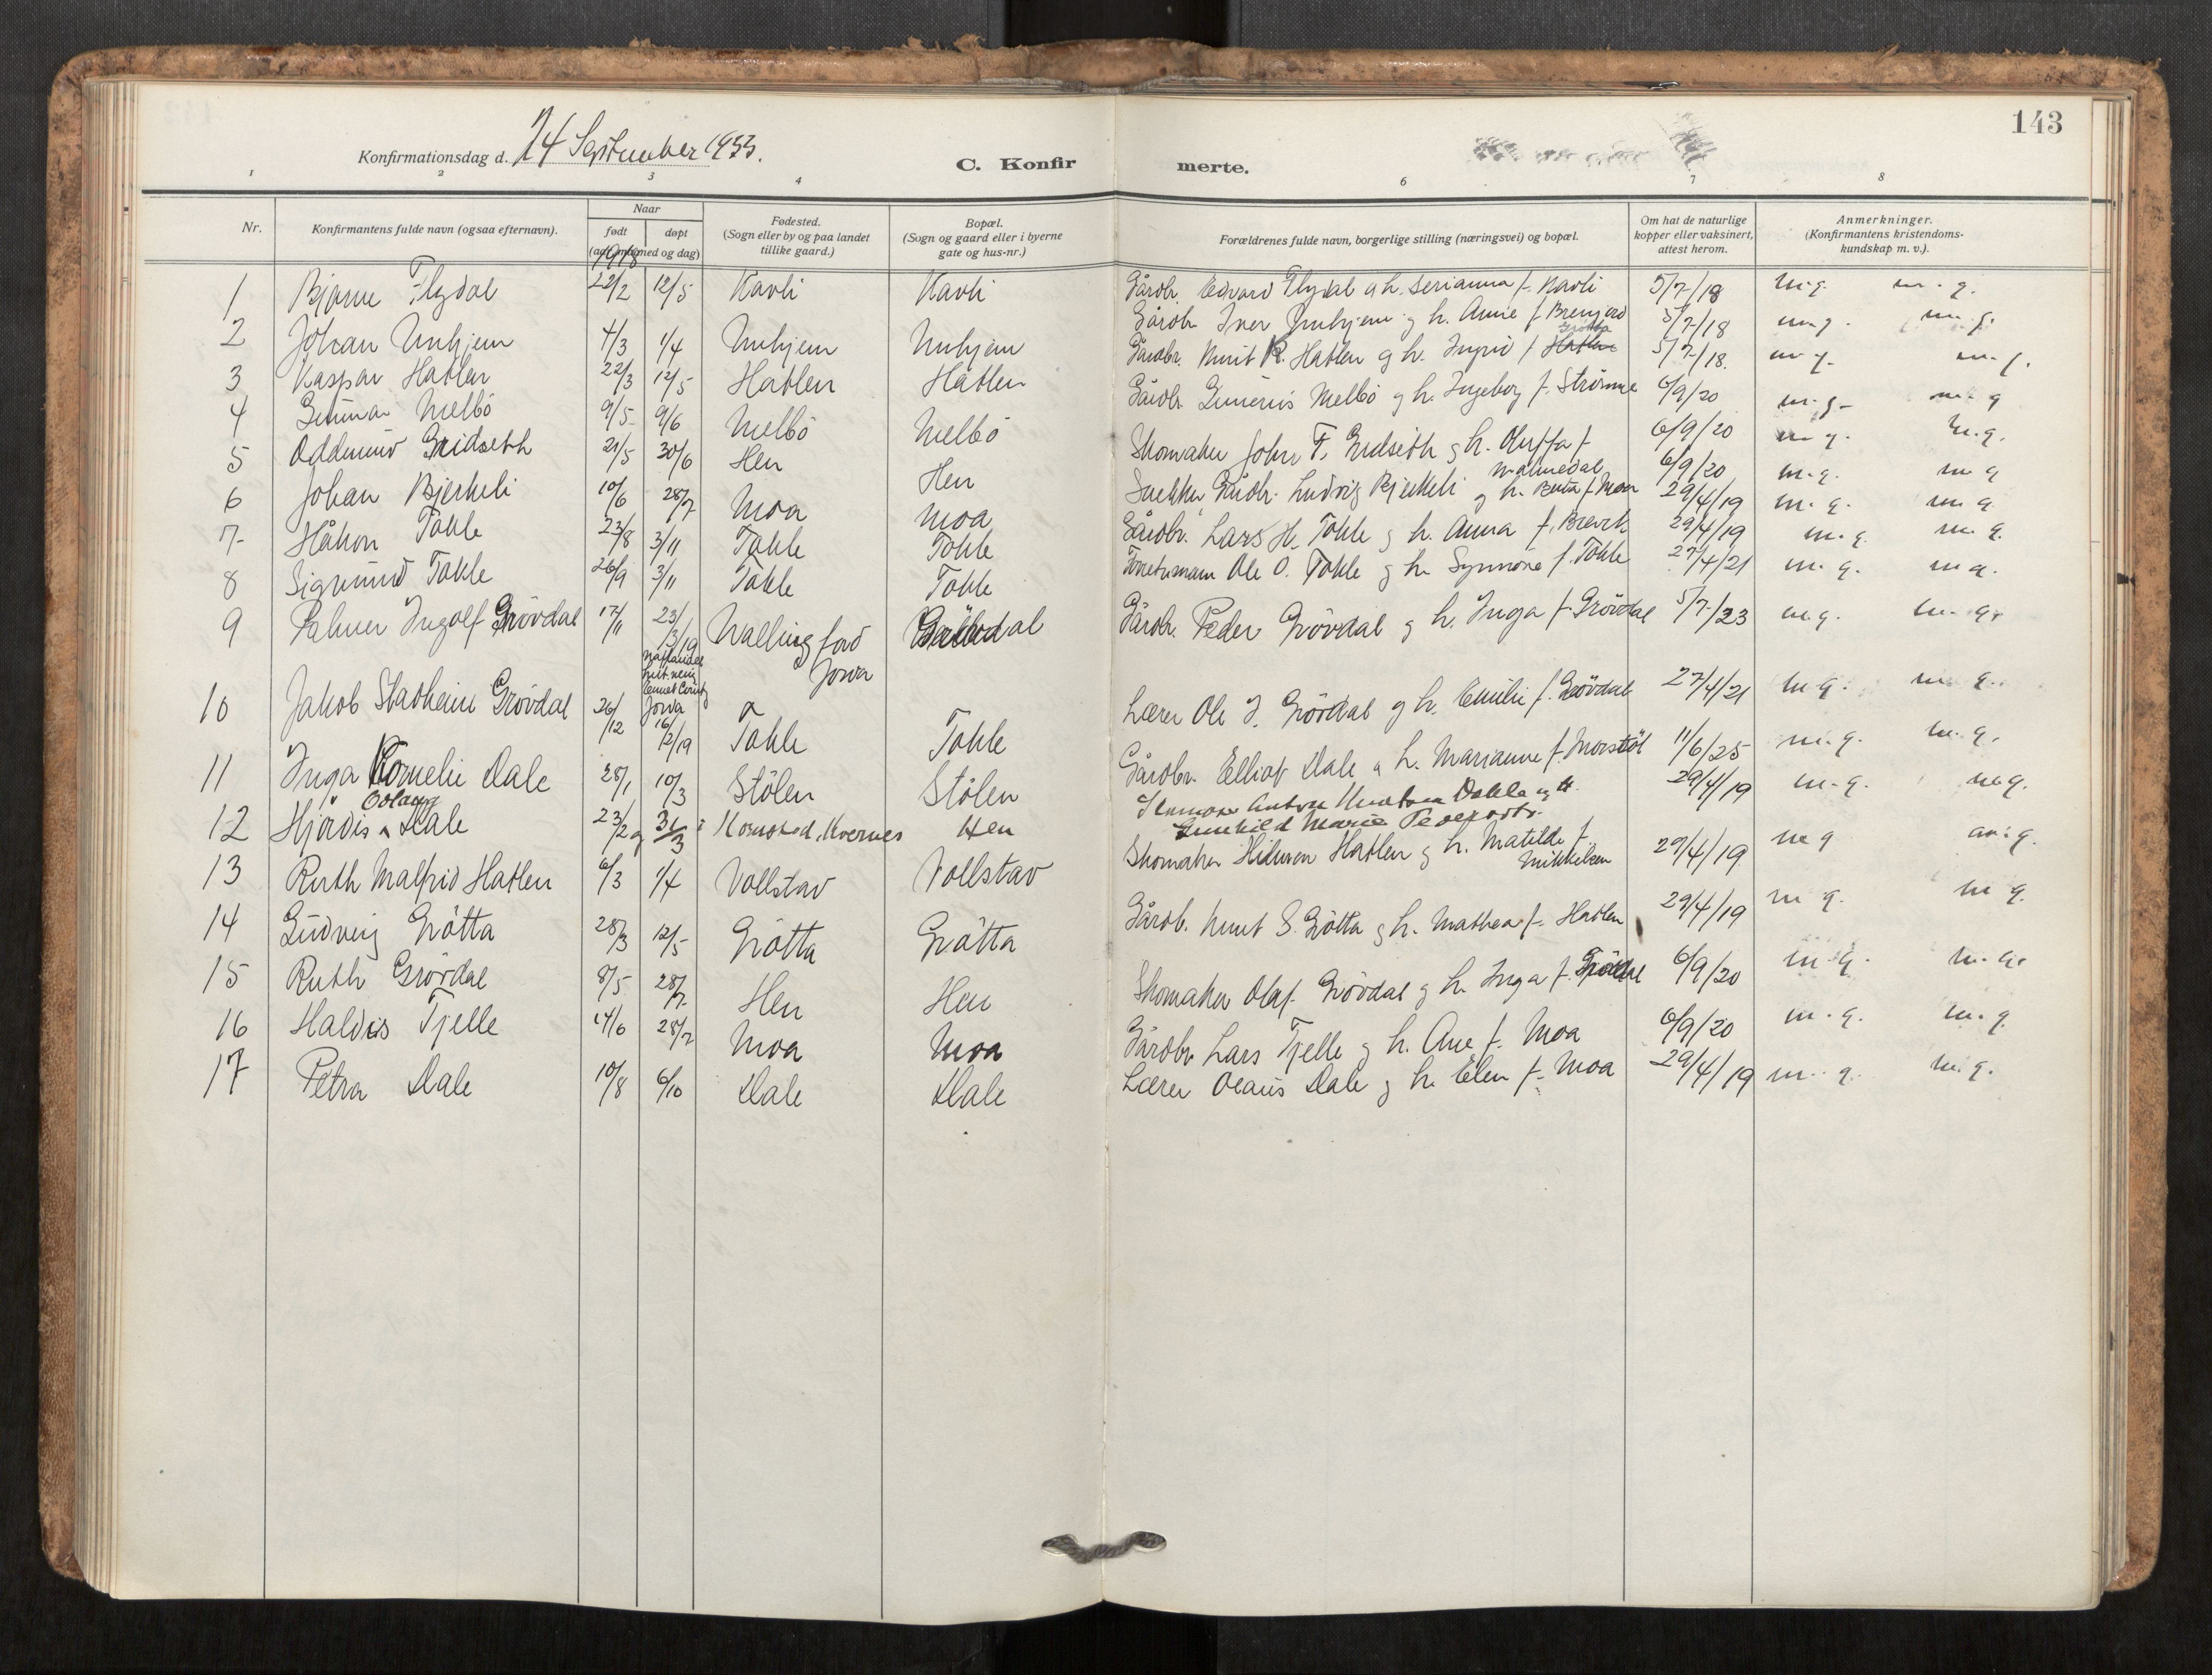 143
Konfirmationsdag d. 24 September 1933.
C. Konfirmerte.
1 2 3 4 6 7 8
Nr.
Konfirmantens fulde navn (ogsaa efternavn).
Naar
født
døpt
(aar, maaned og dag)
1918
Fødested.
(Sogn eller by og paa landet
tillike gaard.)
Bopæl.
(Sogn og gaard eller i byerne
gate og hus-nr.)
Forældrenes fulde navn, borgerlige stilling (næringsvei) og bopæl.
Om hat de naturlige
kopper eller vaksinert,
attest herom.
Anmerkninger.
(Konfirmantens kristendoms-
kundskap m. v.).
1 Bjarne Flydal 22/2 12/5 Kavli Kavli Gårdbr. Edvard Flydal og h. Serianna f. Kavli 5/7/18 m.g. m.g.
2 Johan Unhjem 4/3 1/4 Unhjem Unhjem Gårdbr. Iver Unhjem og h. Anne f. 5/7/18 m.g. m.g.
3 Kaspar Hatlen 22/3 12/5 Hatlen Hatlen Gårdbr. Knut K. Hatlen og h. Ingrid f. Hatlen Grötta 5/7/18. m.g. m.g.
4 Gunnar Melbö 9/5 9/6 Melbö Melbö Gårdbr. Gunerius Melbö og h. Ingeborg f. Strömme 6/9/20 m.g. m.g
5 Oddmund Gridseth 21/5 30/6 Hen Hen Skomaker John T. Gridseth og h. Oluffa f. Malmedal 6/9/20 m.g. m.g.
6 Johan Bjerkeli 10/6 28/7 Moa Moa Snekker, Gårdbr. Ludvig Bjerkeli og h. Berta f. Moa 6/9/20 m.g. m.g
7 Håkon Tokle 23/8 3/11 Tokle Tokle Gårdbr. Lars H. Tokle og h. Anna f. Brevik 29/4/19 m.g. m.g.
8 Sigmund Tokle 26/9 3/11 Tokle Tokle Ole O. Tokle og h. Synnöve f. Tokle 29/4/19 m.g. m.g.
9 Palmer Ingolf Grövdal 17/11 23/3/19 Wallingford Jowa Grövdal Gårdbr. Peder Grövdal og h. Inga f. Grövdal 27/4/21 m.g. m.g.
Emmet County
Jowa
10 Jakob Stadheim Grövdal 26/12 16/2/19 Tokle Tokle Lærer Ole J. Grövdal og h. Emilie f. Grövdal 5/7/23 m.g. m.g.
11 Inga Kornelie Dale 28/1 10/3 Stölen Stölen Gårdbr. Elliot Dale og h. Marianne f. Morstöl 27/4/21 m.g. m.g.
12 Hjördis Oslaug Dale 23/2 31/3 Kornstad, Kvernes Hen Anton Knutsen Dahle og h. Gunhild Marie Pedersdtr. 11/6/25 m.g. m.g.
13 Ruth Malfrid Hatlen 6/3 1/4 Vollstav Vollstav Skomaker Hatlen og h. Matilde f. Mikkelsen 29/4/19 m.g. m.g.
14 Gudveig Grötta 28/3 12/5 Grötta Grötta Gårdb. Knut S. Grötta og h. Mathea f. Hatlen 29/4/19 m.g. m.g.
15 Ruth Grövdal 8/5 28/7 Hen Hen Skomaker Olaf Grövdal og h. Inga f. Grövdal 6/9/20 m.g. m.g.
16 Haldis Tjelle 14/6 28/7 Moa Moa Gårdbr. Lars Tjelle og h. Ane f. Moa 6/9/20 m.g. m.g.
17 Petra Dale 10/8 6/10 Dale Dale Lærer Olaus Dale og h. Elen f. Moa 29/4/19 m.g. m.g.